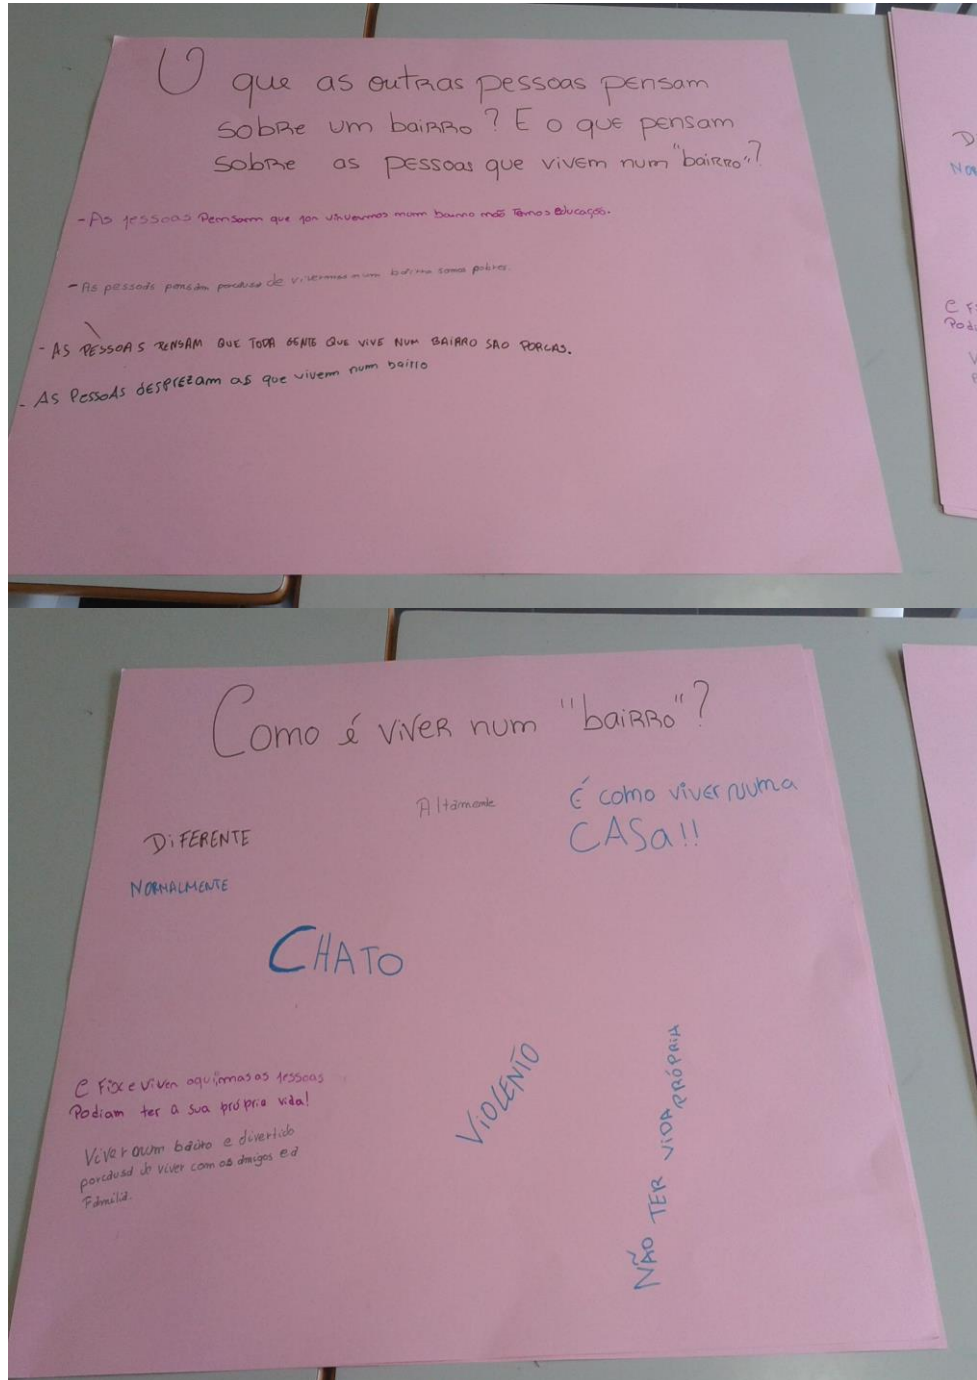 O que as outras pessoas pensam
sobre um bairro? E o que pensam
sobre as pessoas que vivem num "bairro"?
- As pessoas Pensam que por vivermos num bairro não Temos Educação.
- As pessoas pensam porcausa de vivermos num bairro somos pobres.
- AS PESSOAS PENSAM QUE TODA GENTE QUE VIVE NUM BAIRRO SÃO PORCAS.
- AS PessoAs dESPREZam as que vivem num bairro
Como é viver num "bairro"?
Altamente
É como viver numa
CASa!!
DiFERENTE
NORMALMENTE
CHATO
e Fixe viver aqui, mas as pessoas
Podiam ter a sua própria vida!
Viver num bairro e divertido
porcausa de viver com os amigos e a
Família.
VIOLENTO
NÃO TER VIDA PRÓPRIA